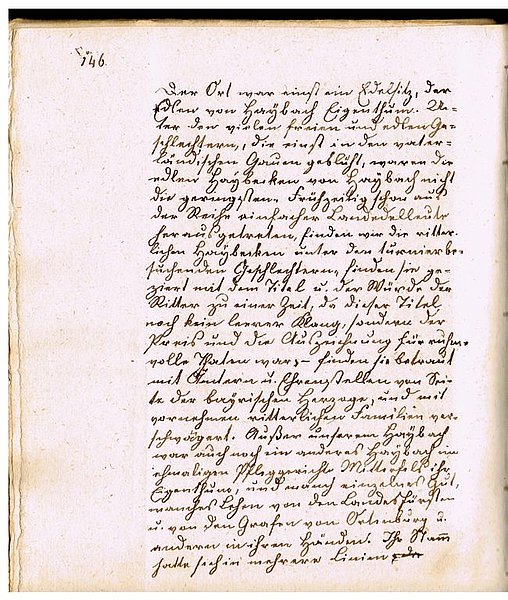 146.
Der Ort war einst ein Edelsitz, der
Edlen von Haybach Eigenthum. Un-
ter den vielen freien und edlen Ge-
schlechtern, die einst in den vater-
ländischen Gauen geblüht, waren die
edlen Haybecken von Haybach nicht
die geringsten. Frühzeitig schon aus
der Reihe einfacher Landedelleute
herausgetreten, finden wir die ritter-
lichen Haybecken unter den turnierbe-
suchenden Geschlechtern, finden sie ge-
ziert mit dem Titel u. der Würde der
Ritter zu einer Zeit, da dieser Titel
noch kein leerer Klang, sondern der
Preis und die Auszeichnung für ruhm-
volle Thaten war; – finden sie betraut
mit Ämtern u. Ehrenstellen von Sei-
te der bayrischen Herzoge, und mit
vornehmen ritterlichen Familien ver-
schwägert. Außer unserem Haybach
war auch noch ein anderes Haybach im
ehmaligen Pfleggerichte Mitterfels ihr
Eigenthum, und manch einzelnes Gut,
manches Lehen von den Landesfürsten
u. von den Grafen von Ortenburg u.
andern in ihren Händen. Ihr Stamm
hatte sich in mehrere Linien